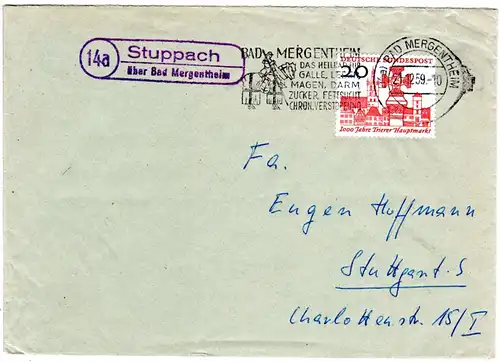 14a
Stuppach
über Bad Mergentheim
BAD MERGENTHEIM
DAS HEILBAD FÜR
GALLE, LEBER
MAGEN, DARM
ZUCKER, FETTSUCHT
CHRON. VERSTOPFUNG
BAD MERGENTHEIM
12.59.-10
DEUTSCHE BUNDESPOST
20
1000 Jahre Trierer Hauptmarkt
Fa.
Eugen Hoffmann
Stuttgart-S
Charlottenstr. 15/I